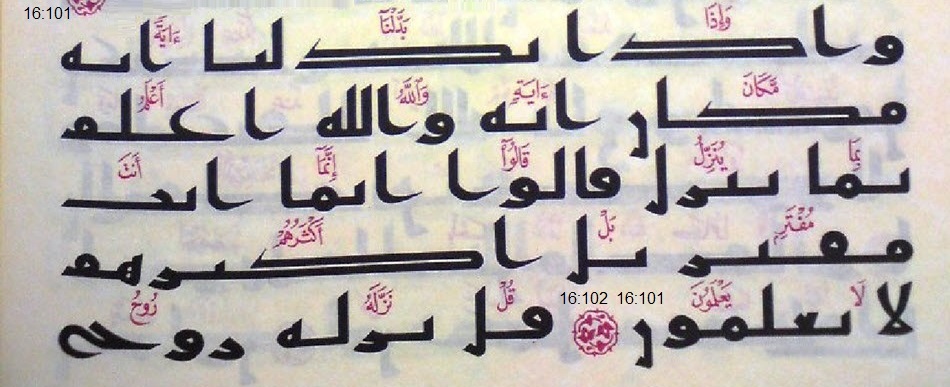 16:101
وَإِذَا بَدَّلْنَا ءَايَةً
واذا بدلنا اية
مَّكَانَ ءَايَةٍ وَٱللَّهُ أَعْلَمُ
مكان اية والله اعلم
بِمَا يُنَزِّلُ قَالُوٓا۟ إِنَّمَآ أَنتَ
بما ينزل قالوا انما انت
مُفْتَرٍۭ بَلْ أَكْثَرُهُمْ
مفتر بل اكثرهم
لَا يَعْلَمُونَ 16:101 16:102 قُلْ نَزَّلَهُۥ رُوحُ
لا يعلمون قل نزله روح